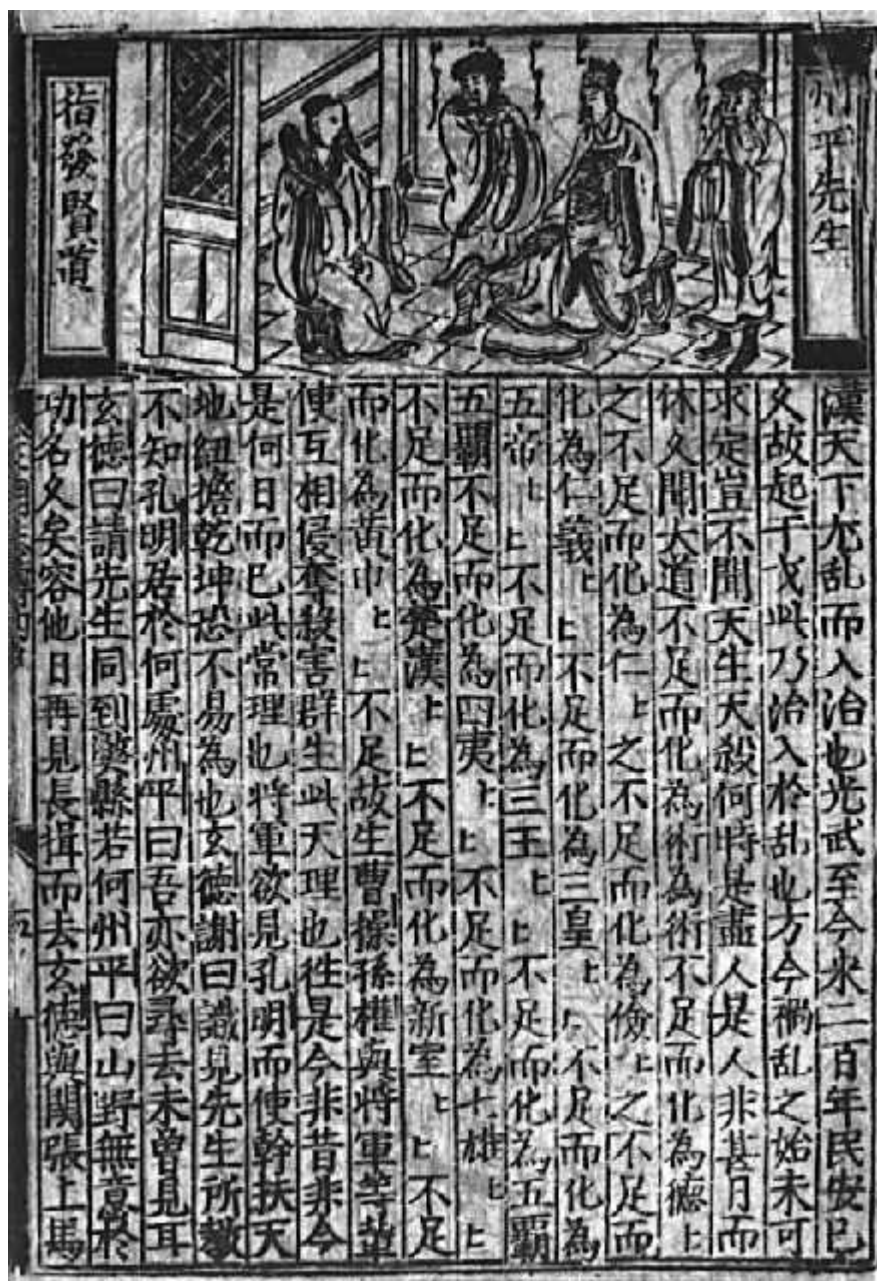 州平先生
指發賢道
漢天下尤乱而入治也光武至今永二百年民安已
久故起干戈此乃治入於乱也方今禍乱之始未可
求定豈不聞天生天殺何時是盡人是人非甚月而
休久聞大道不足而化為術為術不足而化為德〻
之不足而化為仁〻之不足而化為儉〻之不足而
化為仁義〻〻不足而化為三皇〻〻不足而化為
五帝〻〻不足而化為三王〻〻不足而化為五霸
五霸不足而化為四夷〻〻不足而化為七雄〻〻
不足而化為楚漢〻〻不足而化為新室〻〻不足
而化為黃巾〻〻不足故生曹操孫權與將軍等軰
使互相侵奪殺害群生此天理也徃是今非昔非今
是何日而已此常理也將軍欲見孔明而使幹扶天
地紐擔乾坤恐不易為也玄德謝曰識見先生所教
不知孔明居於何處州平曰吾亦欲尋去未曾見耳
玄德曰請先生同到縣若何州平曰山野無意於
功名久矣容他日再見長揖而去玄德與関張上馬